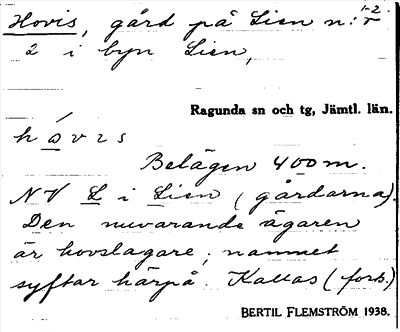 1-2.
Hovis, gård på Lien n:r
2 i byn Lien,
Ragunda sn och tg, Jämtl. län.
hóvis
Belägen 400 m.
NV L i Lien (gårdarna).
Den nuvarande ägaren
är hovslagare; namnet
syftar härpå. Kallas (forts.)
BERTIL FLEMSTRÖM 1938.